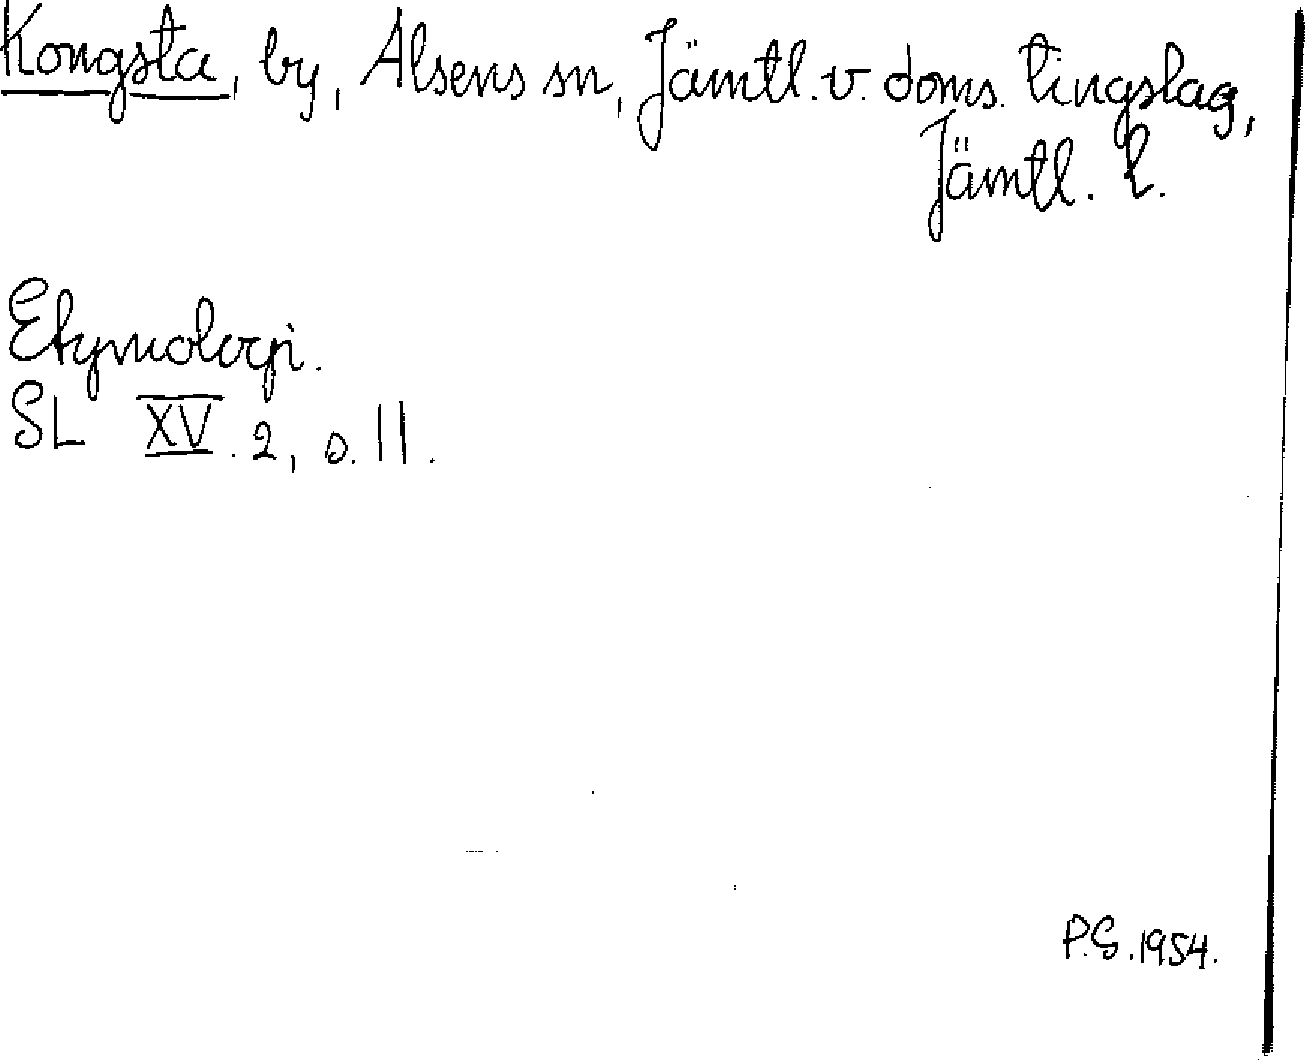 Kongsta, by, Alsens sn, Jämtl. v. doms. tingslag,
Jämtl. l.
Etymologi.
SL XV. 2, s. 11.
P.S. 1954.